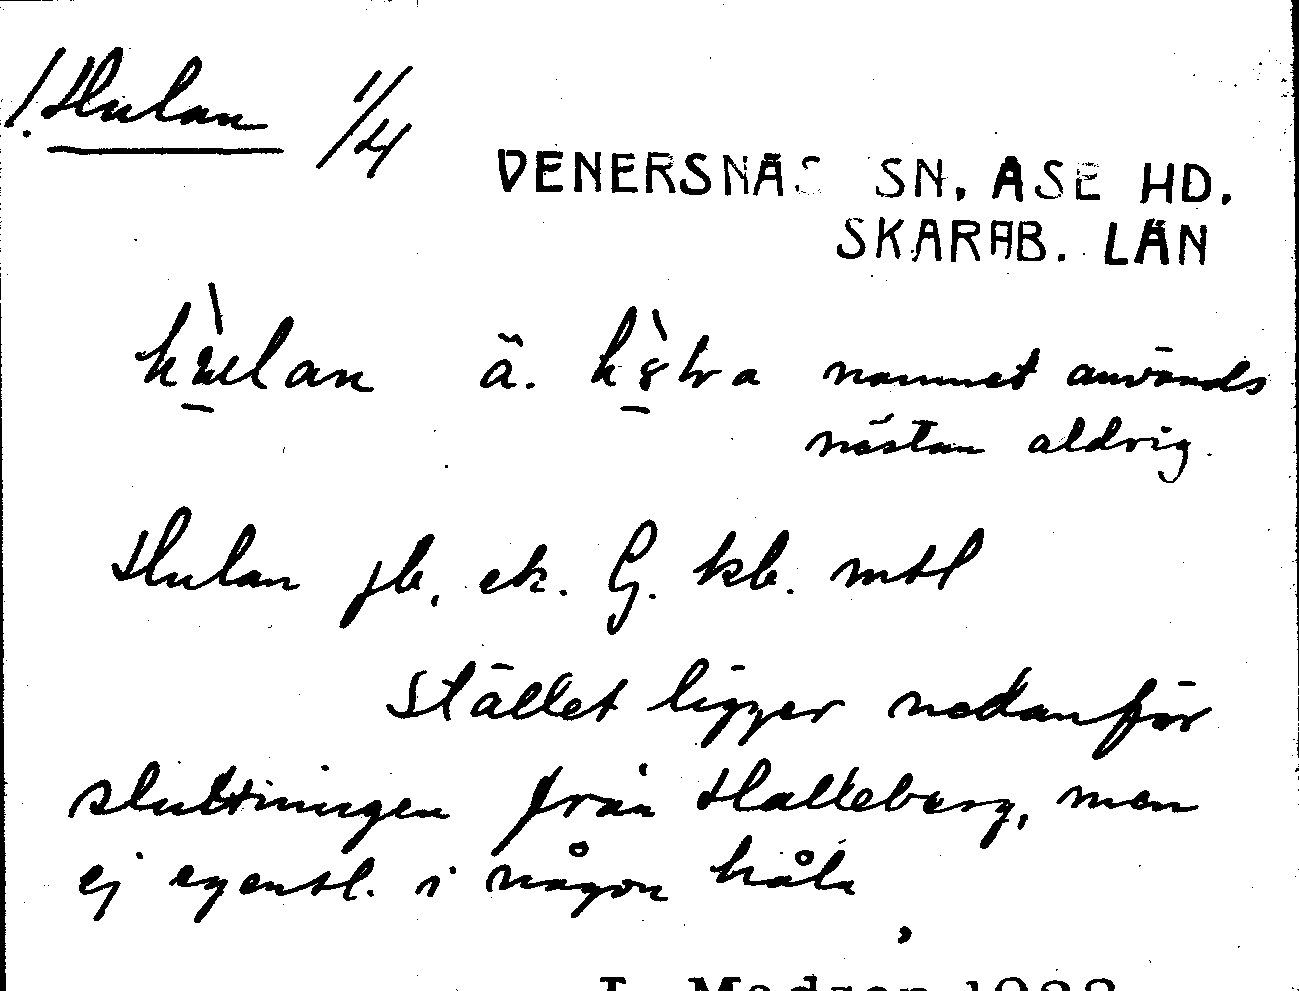 1. Hulan 1/4
VENERSNÄS SN. ASE HD.
SKARAB. LÄN
ä. namnet används
nästan aldrig.
Hulan jb. ek. G. kb. mtl
Stället ligger nedanför
sluttningen från Halleberg, men
ej egentl. i någon håla